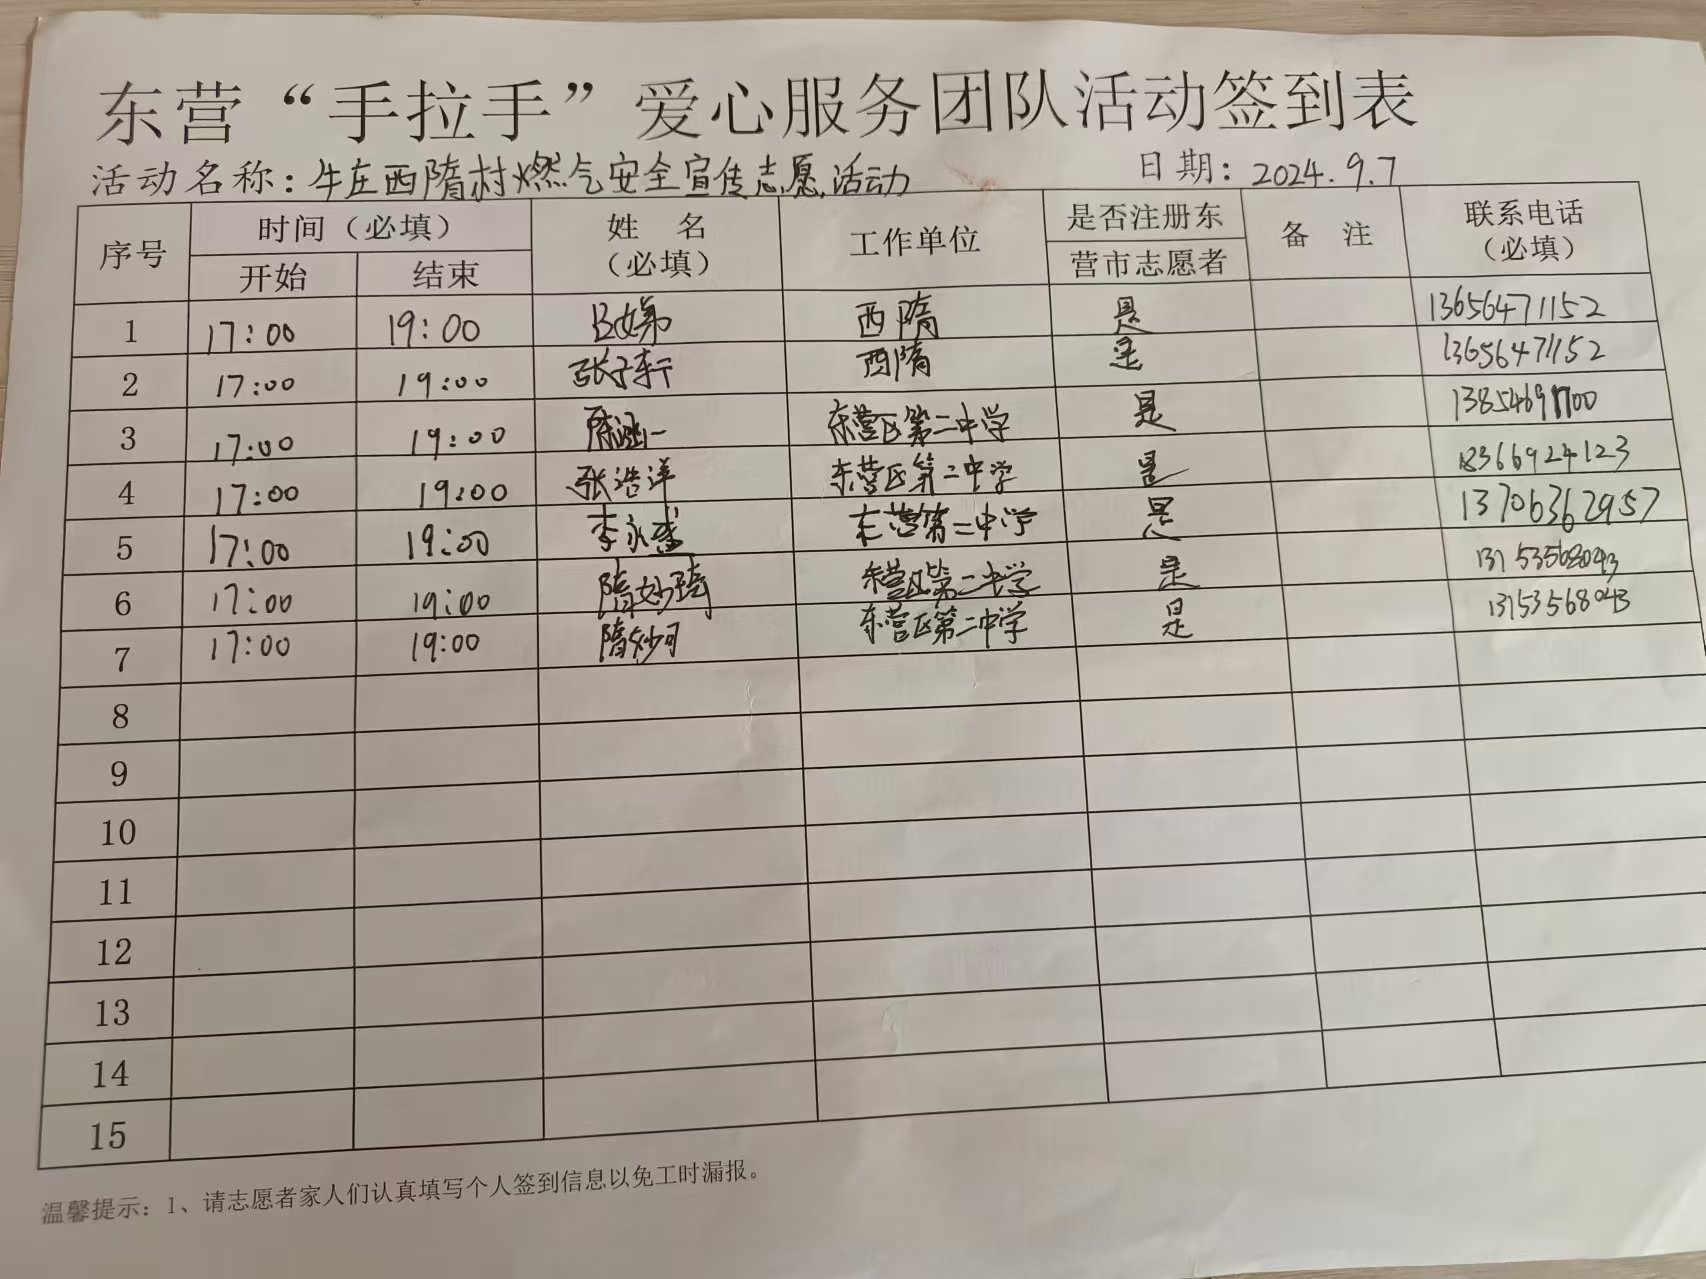 东营“手拉手”爱心服务团队活动签到表
活动名称：牛庄西隋村燃气安全宣传志愿活动 日期：2024.9.7
序号 时间（必填） 姓 名（必填） 工作单位 是否注册东营市志愿者 备 注 联系电话（必填）
开始 结束
1 17:00 19:00 西隋 是 13656471152
2 17:00 19:00 张子轩 西隋 是 13656471152
3 17:00 19:00 东营区第二中学 是
4 17:00 19:00 张浩洋 东营区第二中学 是 18366924123
5 17:00 19:00 李永盛 东营第二中学 是 13706362957
6 17:00 19:00 隋妙琦 东营区第二中学 是 13153568043
7 17:00 19:00 隋妙可 东营区第二中学 是 13153568043
8
9
10
11
12
13
14
15
温馨提示：1、请志愿者家人们认真填写个人签到信息以免工时漏报。